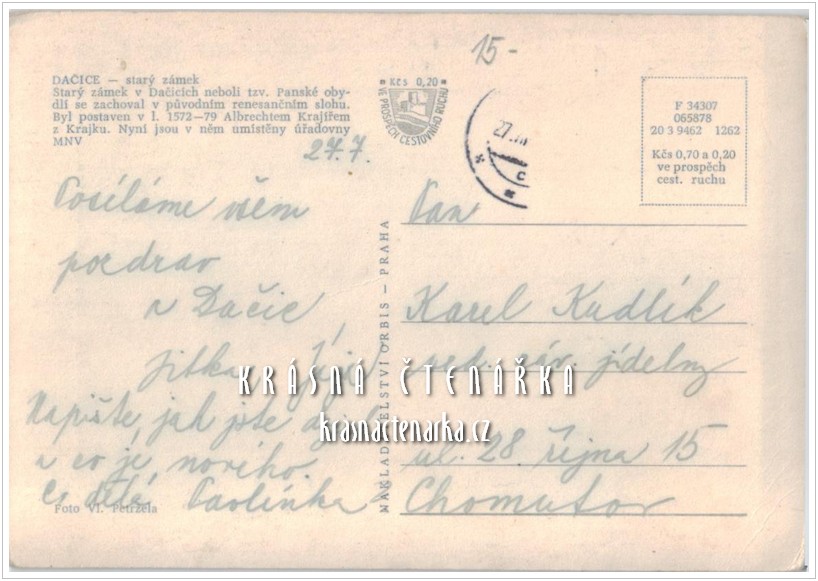 15-
DAČICE — starý zámek
Starý zámek v Dačicích neboli tzv. Panské oby-
dlí se zachoval v původním renesančním slohu.
Byl postaven v l. 1572—79 Albrechtem Krajířem
z Krajku. Nyní jsou v něm umístěny úřadovny
MNV
Kčs 0,20
VE PROSPĚCH CESTOVNÍHO RUCHU
27.
F 34307
065878
20 3 9462 1262
Kčs 0,70 a 0,20
ve prospěch
cest. ruchu
27.7.
Posíláme všem
pozdrav
z Dačic
Jitka,
Napište, jak jste
a co je nového.
Co dělá Pavlínka
Foto Vl. Petržela
NAKLADATELSTVÍ ORBIS — PRAHA
Pan
Karel Kudlík
ved. záv. jídelny
ul. 28 října 15
Chomutov
KRÁSNÁ ČTENÁŘKA
krasnactenarka.cz